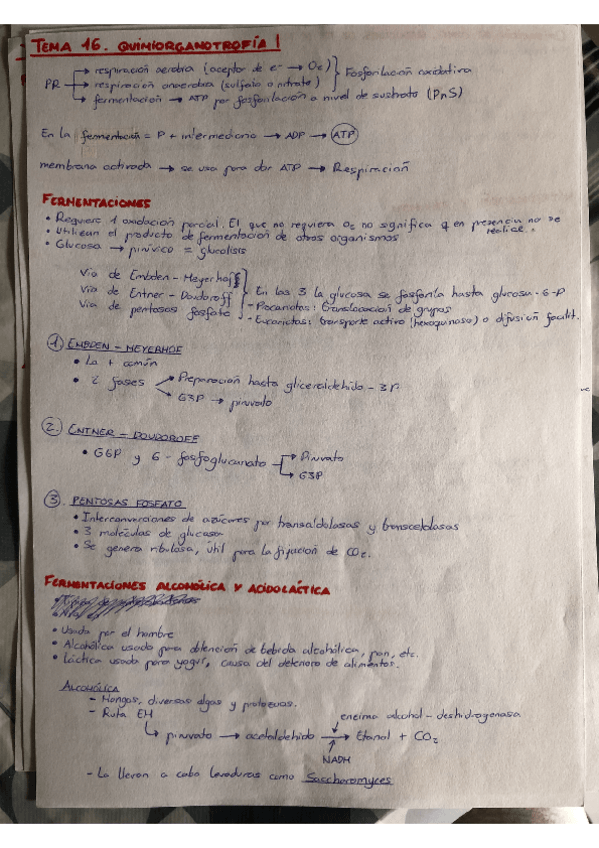 TEMA 16. QUIMIORGANOTROFÍA I
PR → respiración aerobia (aceptor de e⁻ → O₂)
→ respiración anaerobia (sulfato o nitrato) } Fosforilación oxidativa
→ fermentación → ATP por fosforilación a nivel de sustrato (PnS)
En la fermentación = P + intermediario → ADP → ATP
membrana activada → se usa para dar ATP → Respiración
FERMENTACIONES
• Requiere 1 oxidación parcial. El que no requiera O₂ no significa q en presencia no se realice.
• Utilizan el producto de fermentación de otros organismos
• Glucosa → pirúvico = glucolisis
Vía de Embden - Meyerhoff
Vía de Entner - Doudoroff
Vía de pentosas fosfato
En las 3 la glucosa se fosforila hasta glucosa-6-P
- Procariotas: translocación de grupos
- Eucariotas: transporte activo (hexoquinasa) o difusión facilit.
① EMBDEN - MEYERHOF
• La + común
• 2 fases → Preparación hasta gliceraldehido - 3P
→ G3P → piruvato
②. ENTNER - DOUDOROFF
• G6P y 6 - fosfogluconato → Piruvato
→ G3P
③. PENTOSAS FOSFATO
• Interconversiones de azúcares por transaldolasas y transcetolasas
• 3 moléculas de glucosa
• Se genera ribulosa, útil para la fijación de CO₂.
FERMENTACIONES ALCOHÓLICA Y ACIDOLÁCTICA
• Usada por el hombre
• Alcohólica usado para obtención de bebida alcohólica, pan, etc.
• Láctica usado para yogur, causa del deterioro de alimentos.
ALCOHÓLICA
- Hongos, diversas algas y protozoos.
- Ruta EH
enzima alcohol - deshidrogenasa
↳ piruvato → acetaldehido → Etanol + CO₂
NADH
- La llevan a cabo levaduras como Saccharomyces